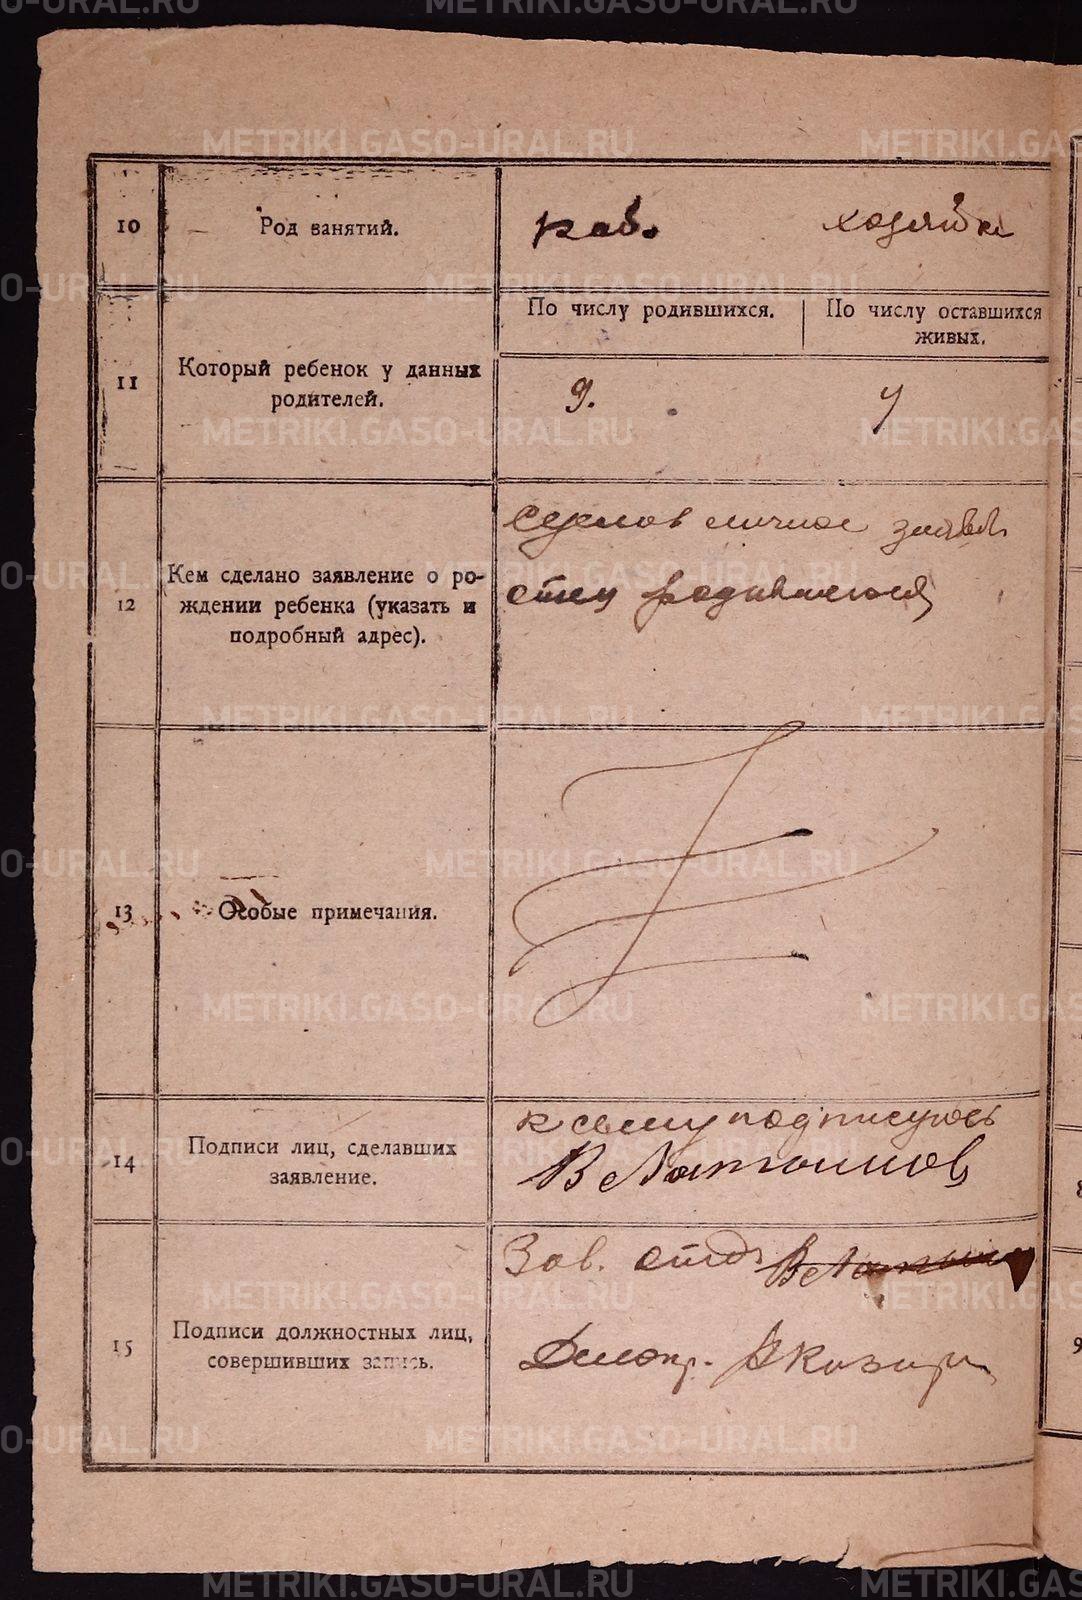 METRIKI.GASO-URAL.RU
10
Род занятий.
раб.
хозяйка
По числу родившихся.
По числу оставшихся
живых.
11
Который ребенок у данных
родителей.
9.
7
12
Кем сделано заявление о ро-
ждении ребенка (указать и
подробный адрес).
личное заявл
отец родившегося
13
Особые примечания.
14
Подписи лиц, сделавших
заявление.
к сему подписуюсь
15
Подписи должностных лиц,
совершивших запись.
Зав. отд
Делопр.